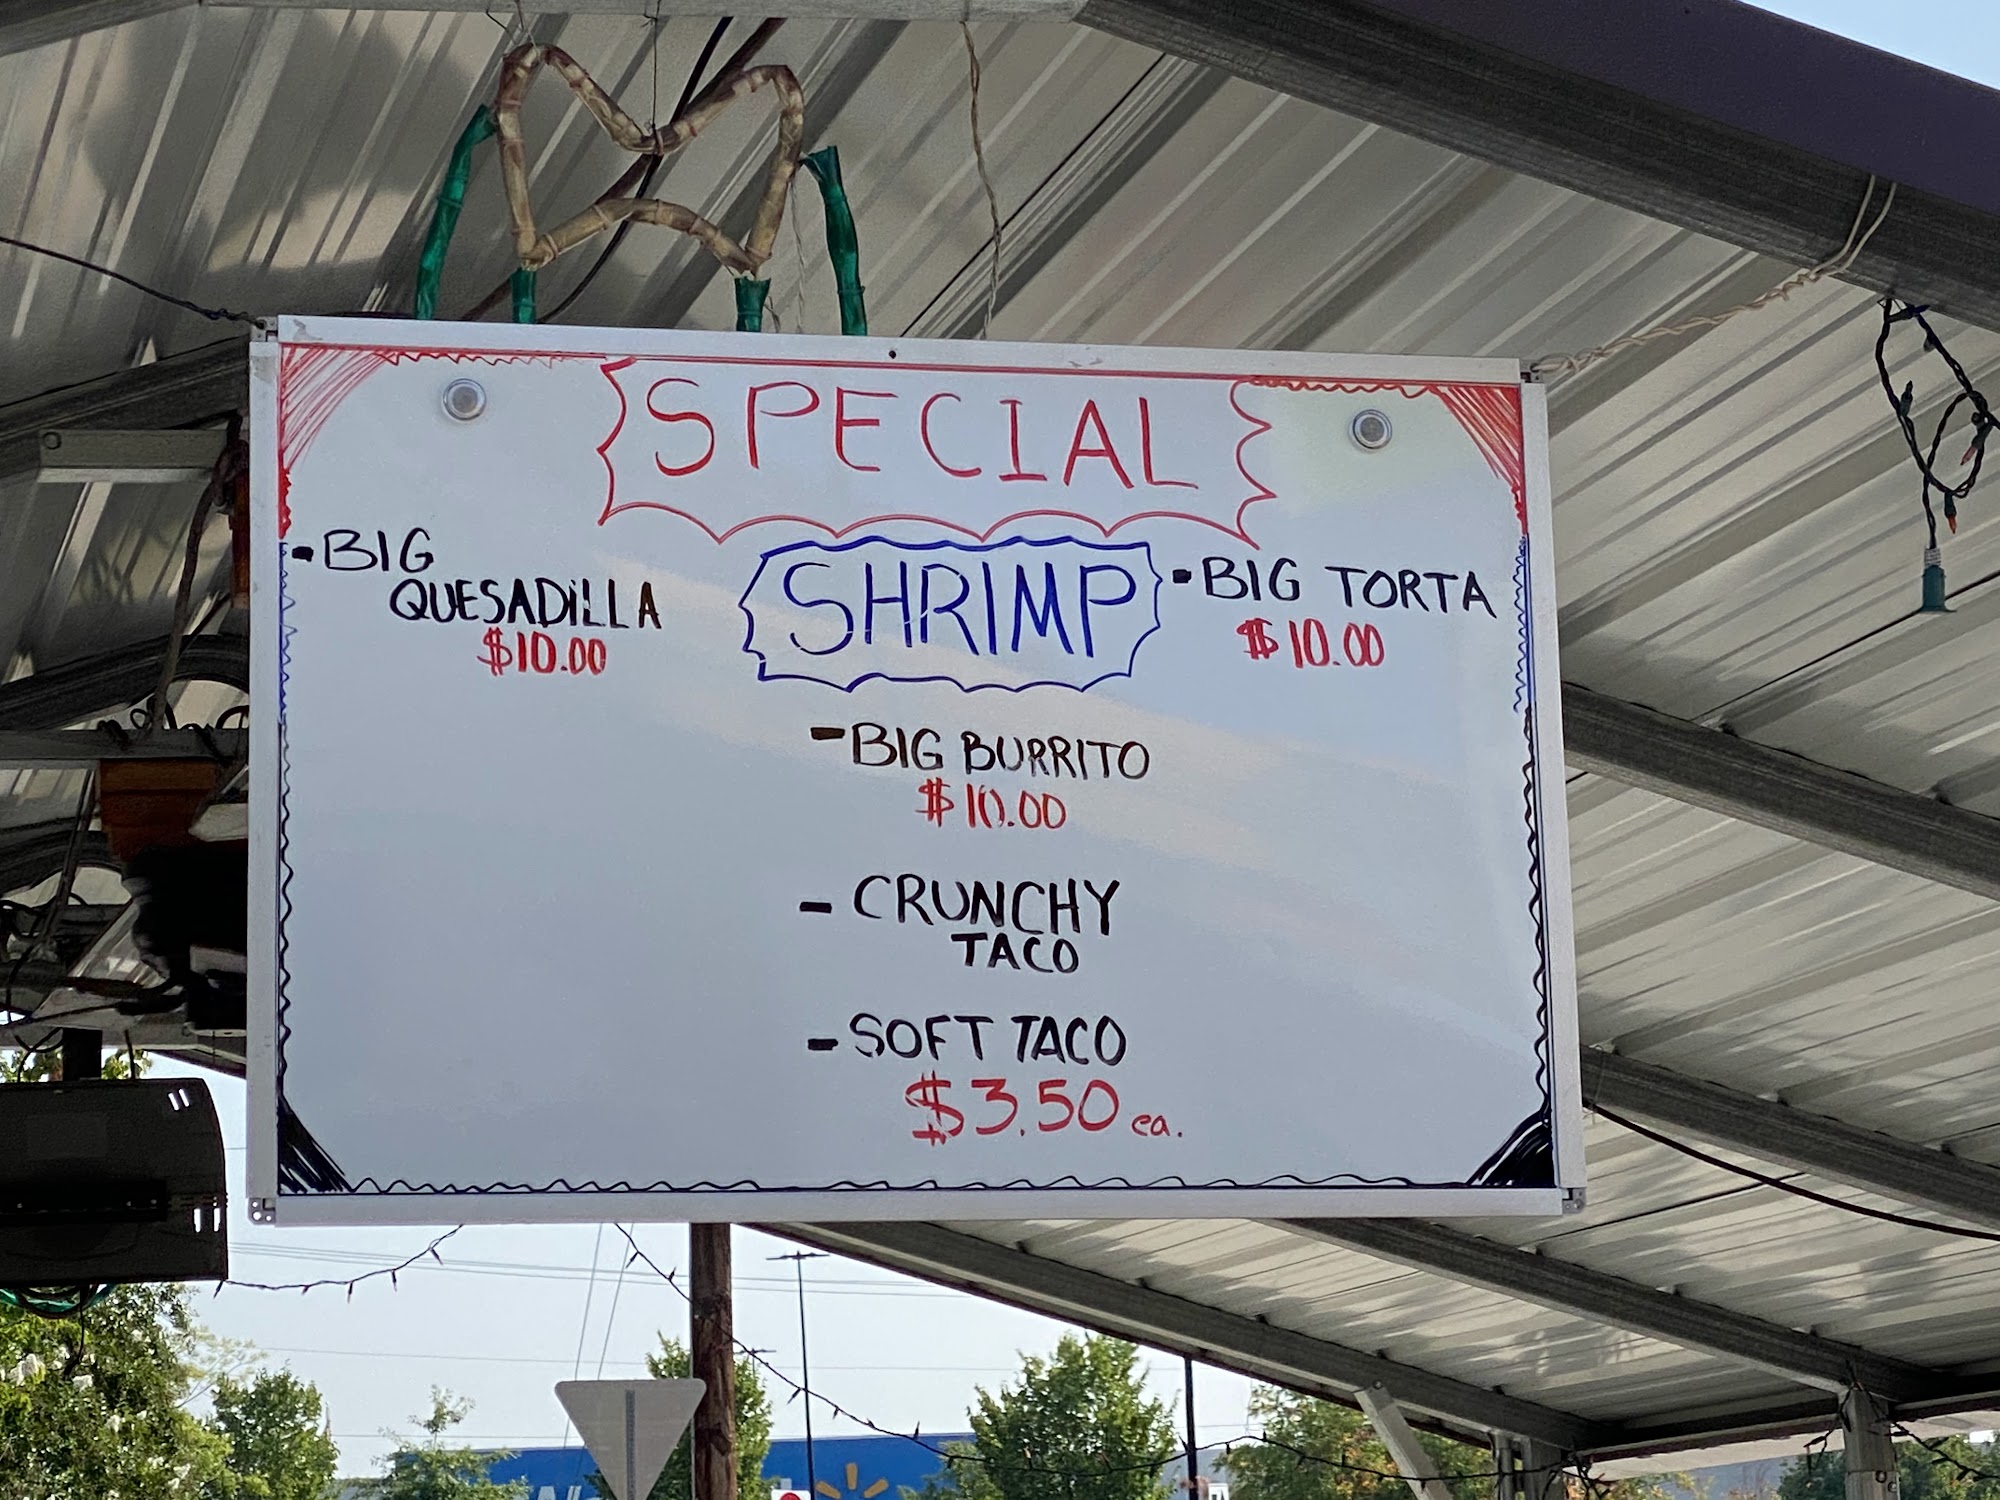 SPECIAL
SHRIMP
- BIG
QUESADiLLA
$10.00
- BIG TORTA
$10.00
- BIG BURRITO
$10.00
- CRUNCHY
TACO
- SOFT TACO
$3.50 ea.